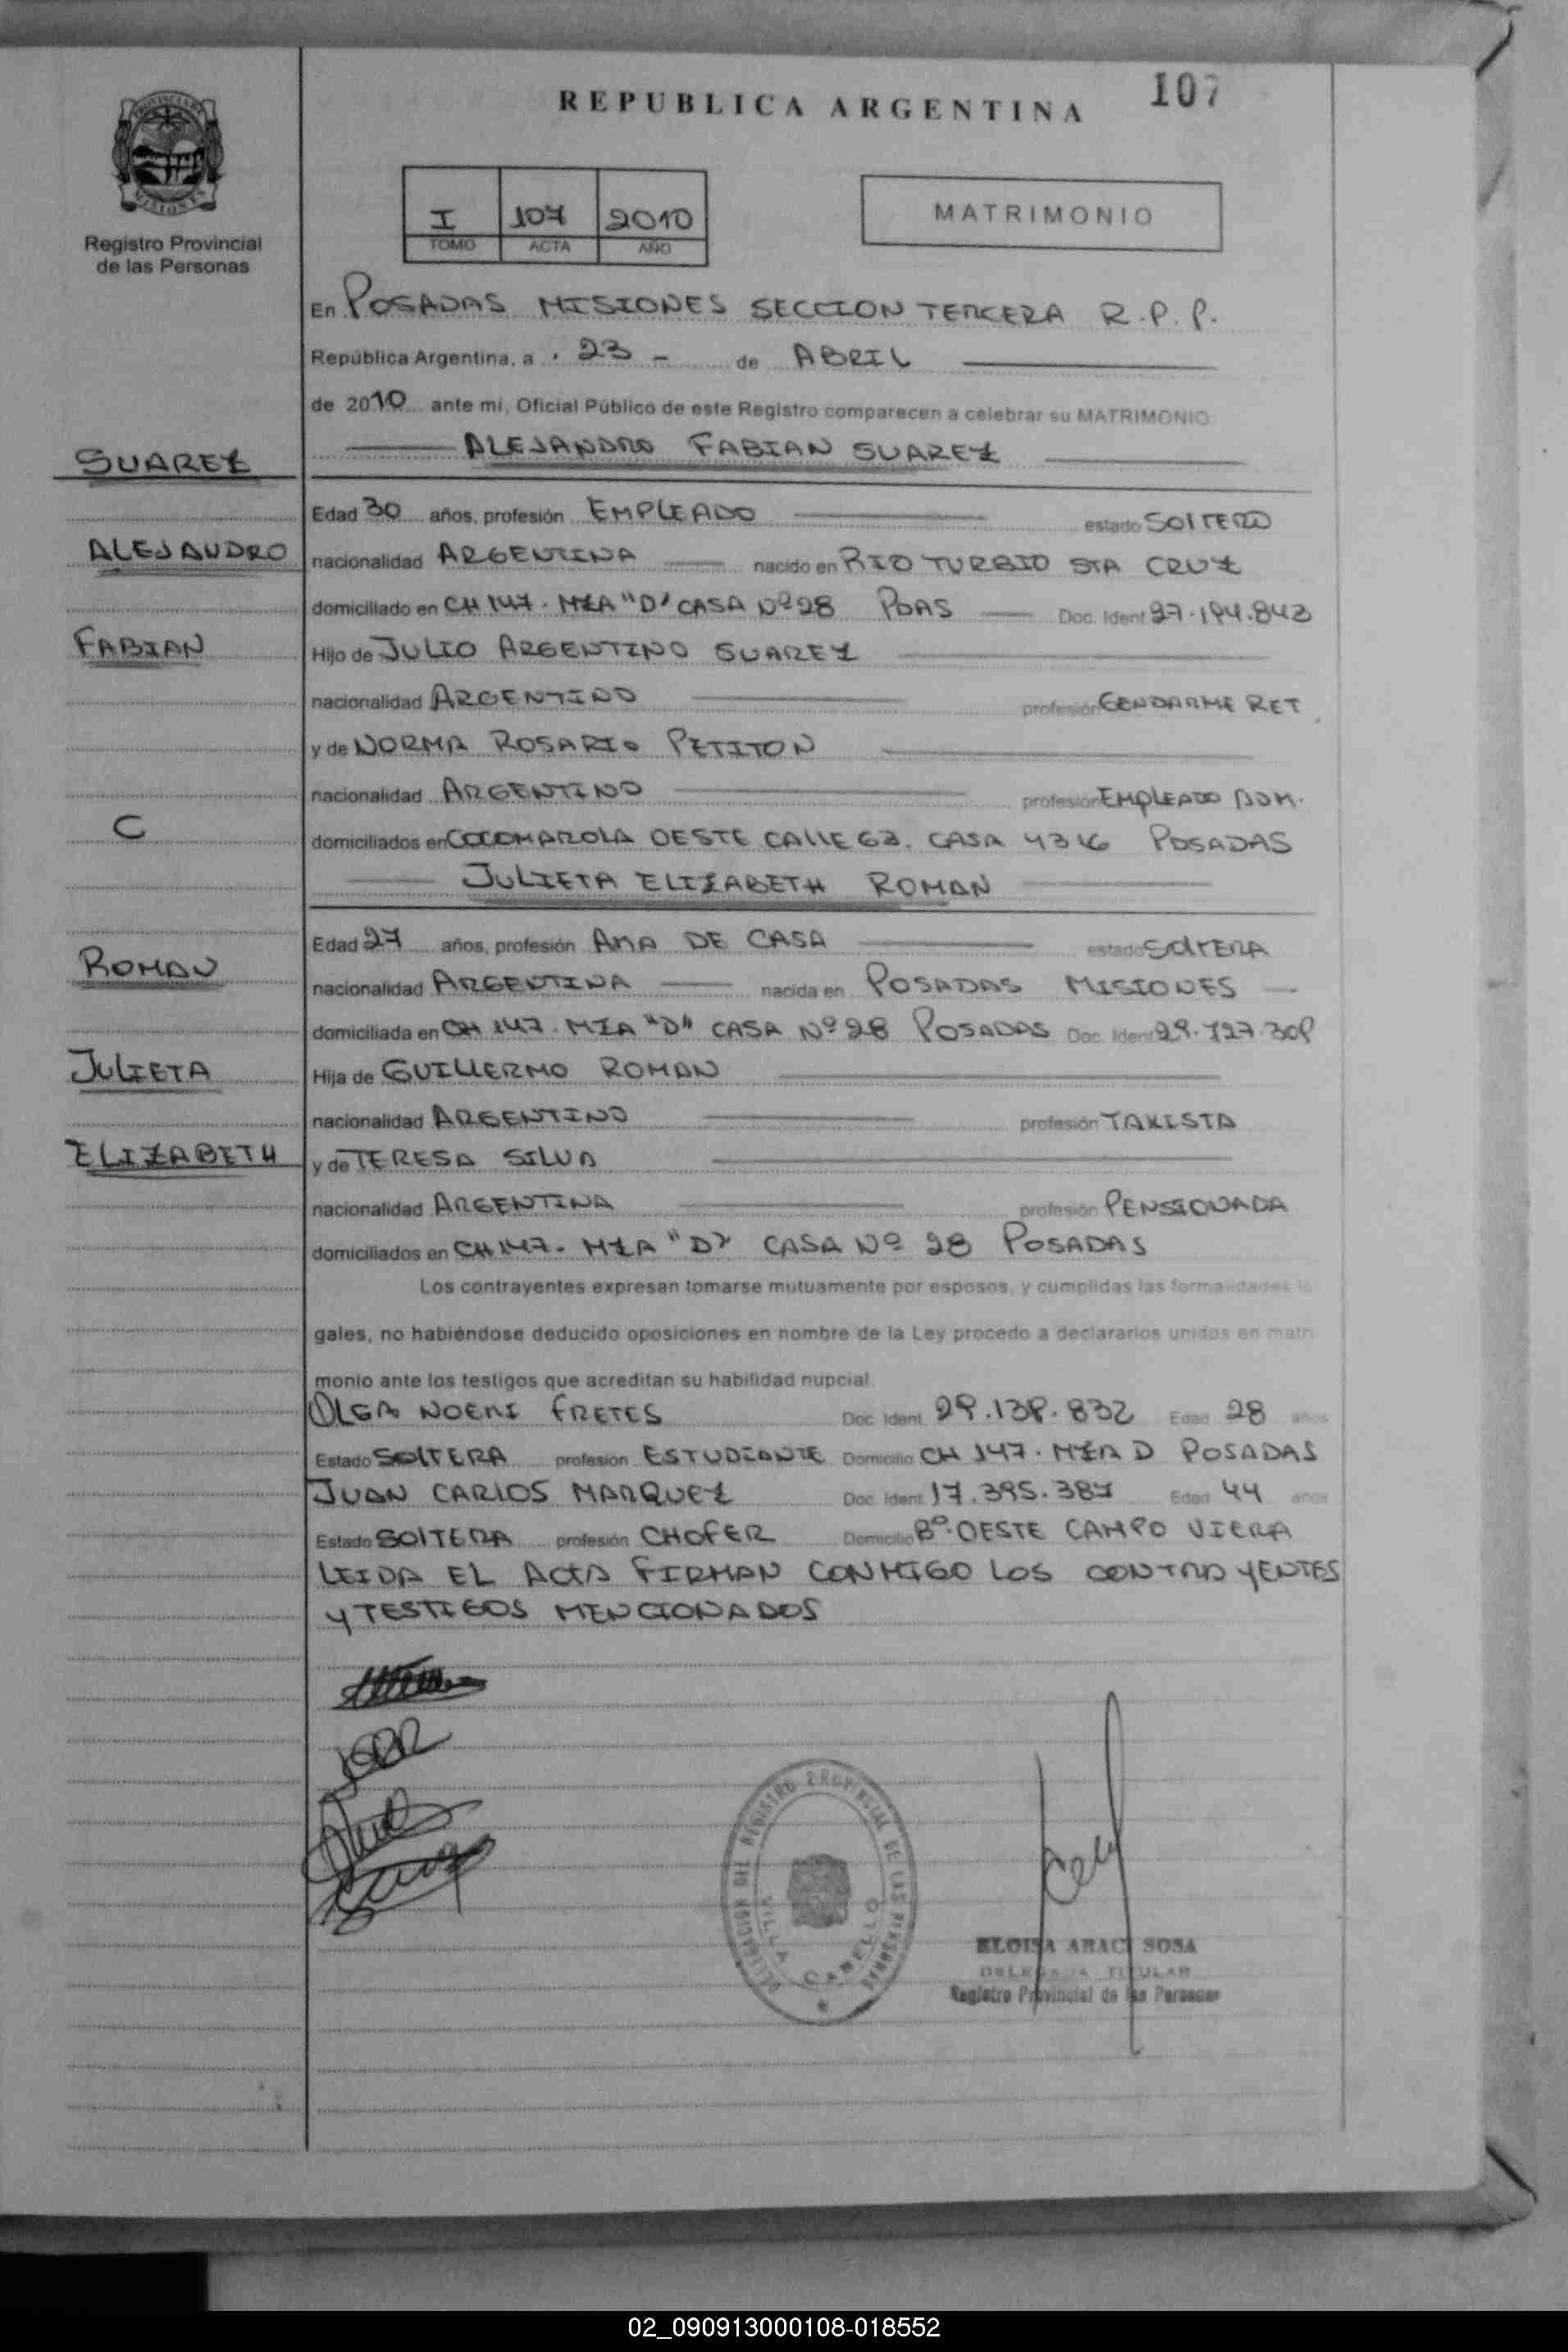 REPUBLICA ARGENTINA
107
PROVINCIA DE
MISIONES
Registro Provincial
de las Personas
I 107 2010
TOMO ACTA AÑO
MATRIMONIO
En POSADAS MISIONES SECCION TERCERA R.P.P.
República Argentina, a 23 - de ABRIL
de 2010 ante mi, Oficial Público de este Registro comparecen a celebrar su MATRIMONIO
ALEJANDRO FABIAN SUAREZ
SUAREZ
Edad 30 años, profesión EMPLEADO estado SOLTERO
ALEJANDRO
nacionalidad ARGENTINA nacido en RIO TURBIO STA CRUZ
domiciliado en CH 147. MZA "D" CASA Nº 28 PDAS Doc. Ident 27.194.843
FABIAN
Hijo de JULIO ARGENTINO SUAREZ
nacionalidad ARGENTINO profesión GENDARME RET
y de NORMA ROSARIO PETITON
nacionalidad ARGENTINO profesión EMPLEADO ADM.
C
domiciliados en COCOMAROLA OESTE CALLE 63. CASA 4316 POSADAS
JULIETA ELIZABETH ROMAN
Edad 27 años, profesión AMA DE CASA estado SOLTERA
ROMAN
nacionalidad ARGENTINA nacida en POSADAS MISIONES
domiciliada en CH 147. MZA "D" CASA Nº 28 POSADAS Doc. Ident 29.727.309
JULIETA
Hija de GUILLERMO ROMAN
nacionalidad ARGENTINO profesión TAXISTA
ELIZABETH
y de TERESA SILVA
nacionalidad ARGENTINA profesión PENSIONADA
domiciliados en CH 147. MZA "D" CASA Nº 28 POSADAS
Los contrayentes expresan tomarse mutuamente por esposos, y cumplidas las formalidades le
gales, no habiéndose deducido oposiciones en nombre de la Ley procedo a declararlos unidos en matri
monio ante los testigos que acreditan su habilidad nupcial.
OLGA NOEMI FRETES Doc. Ident. 29.138.832 Edad 28 años
Estado SOLTERA profesión ESTUDIANTE Domicilio CH 147. MZA D POSADAS
JUAN CARLOS MARQUEZ Doc. Ident. 17.395.387 Edad 44 años
Estado SOLTERA profesión CHOFER Domicilio Bº. OESTE CAMPO VIERA
LEIDA EL ACTA FIRMAN CONMIGO LOS CONTRAYENTES
Y TESTIGOS MENCIONADOS
DELEGACION DEL REGISTRO PROVINCIAL DE LAS PERSONAS
VILLA CABELLO
ELOISA ARACI SOSA
DELEGADA TITULAR
Registro Provincial de las Personas
02_090913000108-018552